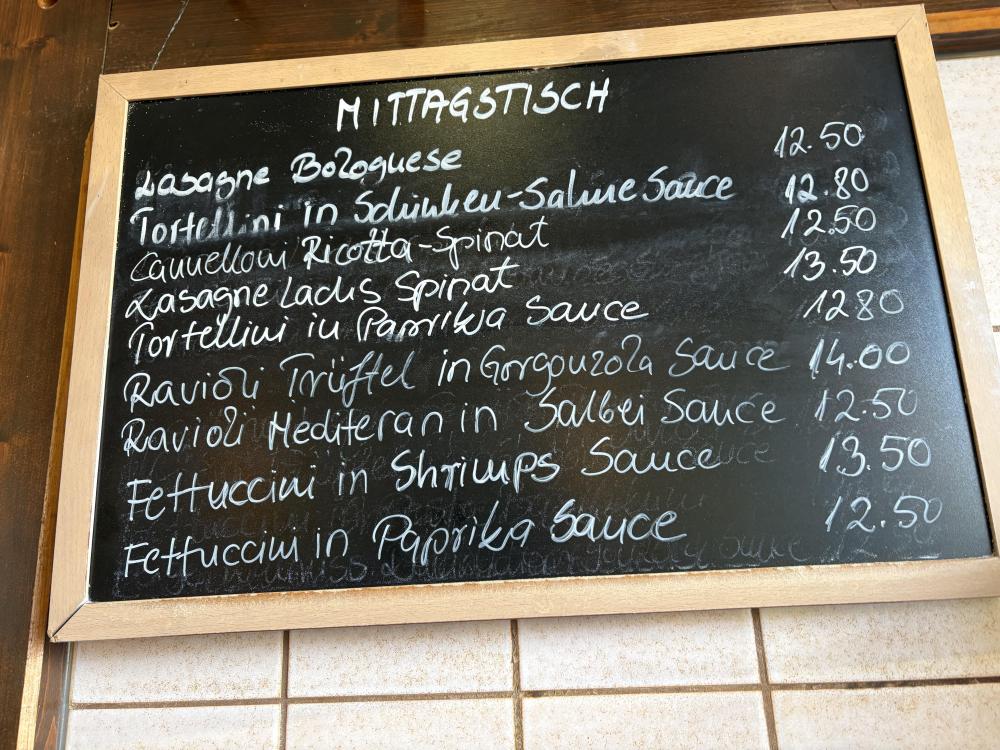 MITTAGSTISCH
Lasagne Bolognese 12.50
Tortellini in Schinken-Sahne Sauce 12.80
Cannelloni Ricotta-Spinat 12.50
Lasagne Lachs Spinat 13.50
Tortellini in Paprika Sauce 12 80
Ravioli Trüffel in Gorgonzola Sauce 14.00
Ravioli Mediteran in Salbei Sauce 12.50
Fettuccini in Shrimps Sauce 13.50
Fettuccini in Paprika Sauce 12.50